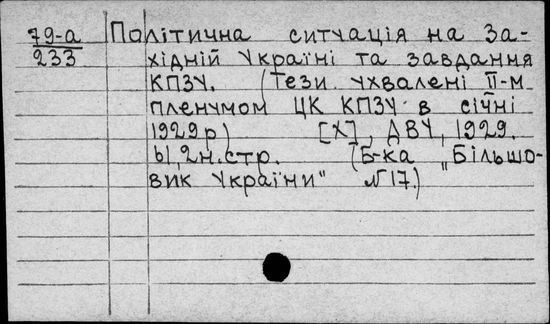 79-а Політична ситуація на За-
233 хідній Україні та завдання
КПЗУ. (Тези ухвалені II-м
пленумом ЦК КПЗУ в січні
1929р) [Х], ДВУ, 1929.
61,2н.стр. (Б-ка „Більшо-
вик України" №17.)